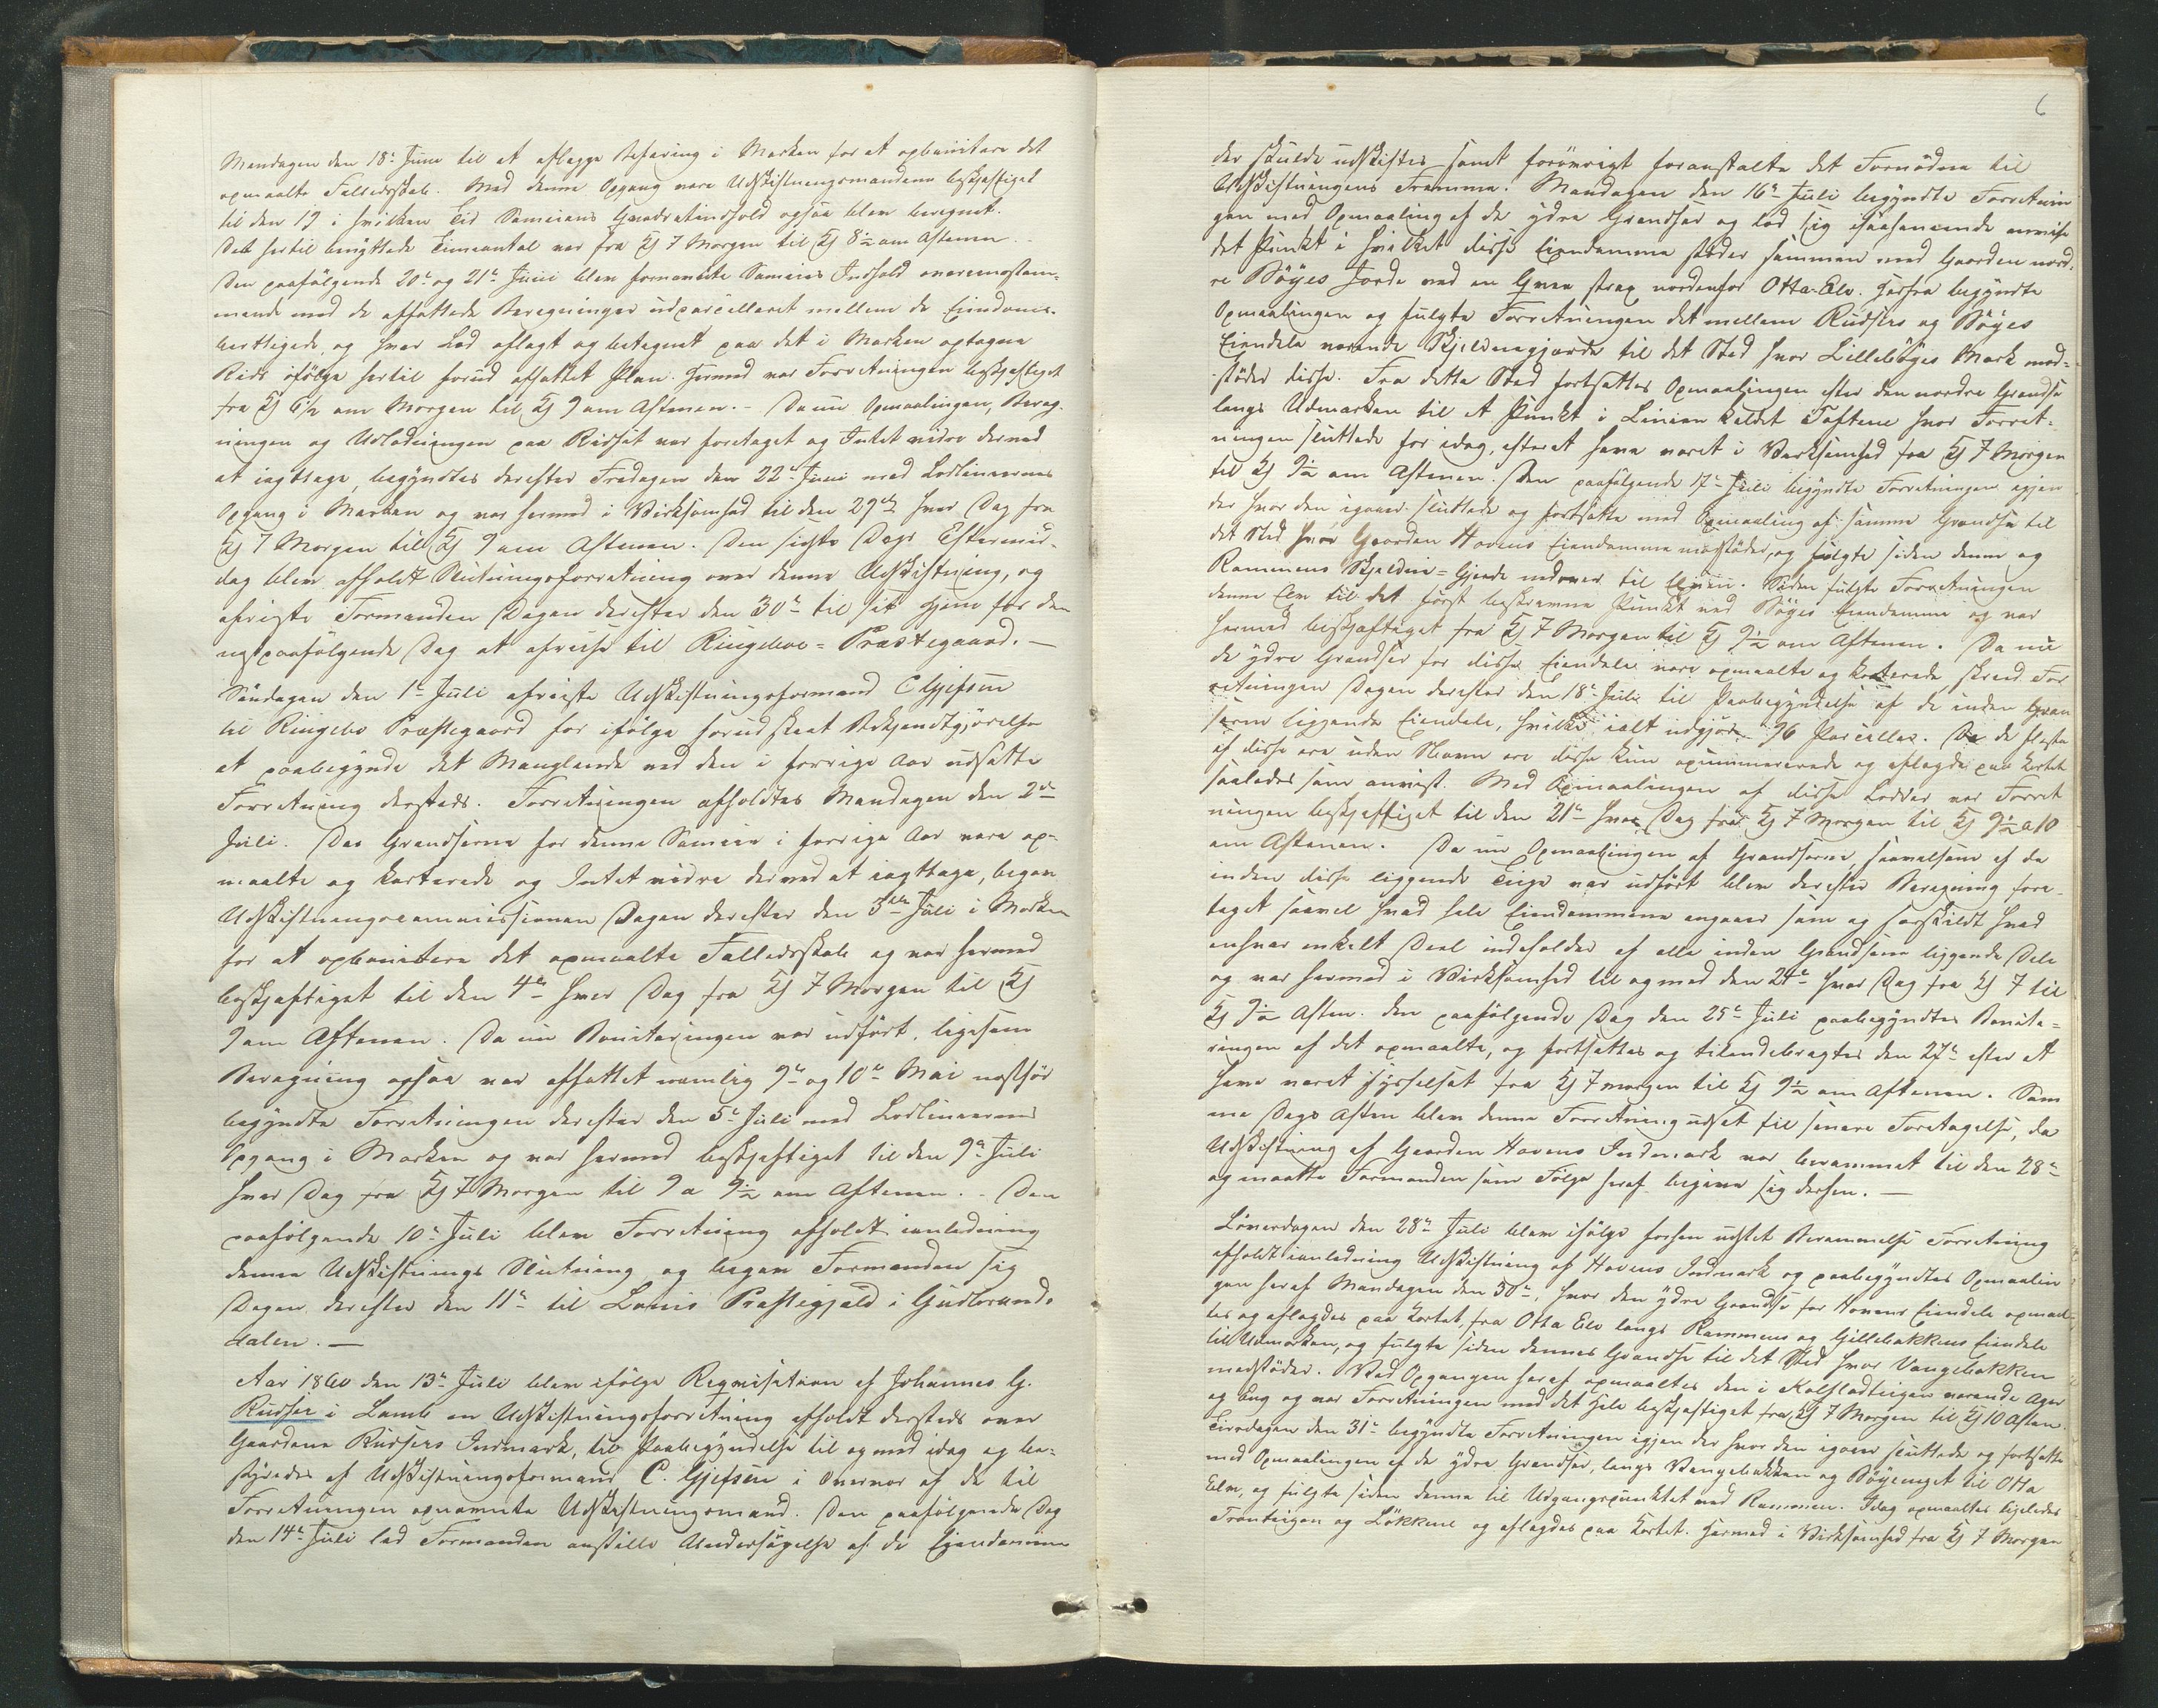 Mandagen den 18de Juni til at aflægge Befaring i Marken for at opbonitere det
opmaalte Fælledsskab. Med denne Opgang vare Udskiftningsmændene beskjæftiget
til den 19 i hvilken Tid Sameiens Qvadratindhold ogsaa blev beregnet.
Det hertil benyttede Timeantal var fra Kl 7 Morgen til Kl 8½ om Aftenen.
Den paafølgende 20de og 21de Juni blev fornævnte Sameies Indhold overensstem-
mende med de affattede Beregninger udparcelleret mellem de Eiendoms-
berettigede, og hver Lod aflagt og betegnet paa det i Marken optagne
Rids ifølge hertil forud affattet Plan. Hermed var Forretningen beskjæftiget
fra Kl 6½ om Morgen til Kl 9 om Aftenen. - Da nu Opmaalingen, Bereg-
ningen og Udlodningen paa Ridset var foretaget og Intet videre derved
at iagttage, begyndtes derefter Fredagen den 22de Juni med Lodliniernes
Opgang i Marken og var hermed i Virksomhed til den 29de hver Dag fra
Kl 7 Morgen till Kl 9 om Aftenen. Den sidste Dags Eftermid-
dag blev afholdt Slutningsforretning over denne Udskiftning, og
afreiste Formanden Dagen derefter den 30te til sit Hjem for den
nestpaafølgende Dag at afreise til Ringeboe-Præstegaard. —
Søndagen den 1te Juli afreiste Udskiftningsformand C Gjefsen
til Ringebo Præstegaard for ifølge forud skeet Bekjendtgjørelse
at paabegynde det Manglende ved den i forrige Aar udsatte
Forretning dersteds. Forretningen afholdtes Mandagen den 2den
Juli. Da Grændserne for denne Sameie i forrige Aar vare op-
maalte og karterede og Intet videre derved at iagttage, begav
Udskiftningscommissionen Dagen derefter den 3die Juli i Marken
for at opbonitere det opmaalte Fælledsskab og var hermed
beskjæftiget til den 4de hver Dag fra Kl 7 Morgen til Kl
9 om Aftenen. Da nu Boniteringen var udført, ligesom
Beregning ogsaa var affattet nemlig 9de og 10de Mai nestfør
begyndte Forretningen derefter den 5te Juli med Lodliniernes
Opgang i Marken og var hermed beskjæftiget til den 9de Juli
hver Dag fra Kl 7 Morgen til 9 a 9½ om Aftenen. - Den
paafølgende 10de Juli blev Forretning afholdt ianledning
denne Udskiftnings Slutning og begav Formanden sig
Dagen derefter den 11te til Lomis Præstegjæld i Gudbrands-
dalen. —
Aar 1860 den 13de Juli blev ifølge Reqvisition af Johannes G.
Rudser i Lomb en Udskiftningsforretning afholdt dersteds over
Gaardene Rudsers Indmark, til Paabegyndelse til og med idag og be-
styredes af Udskiftningsformand C. Gjefsen i Overvær af de til
Forretningen opnævnte Udskiftningsmænd. Den paafølgende Dag
den 14de Juli lod Formanden anstille Undersøgelse af de Eiendomme
6
der skulde udskiftes samt forøvrigt foranstalte det Fornødne til
Udskiftningens Fremme. Mandagen den 16de Juli begyndte Forretnin
gen med Opmaaling af de ydre Grændser og lod sig isaahenseende anvise
det Punkt i hvilket disse Eiendomme støder sammen med Gaarden nord-
re Bøyes Jorde ved en Qvern strax nordenfor Otta-Elv. Herfra begyndte
Opmaalingen og fulgte Forretningen det mellem Rudsers og Bøyes
Eiendele værende Skjeldnegjærde til det Sted hvor Lillebøyes Mark mod-
støder disse. Fra dette Sted fortsattes Opmaalingen efter den nordre Grændse
langs Udmarken til et Punkt i Linien kaldet Toftene hvor Forret-
ningen sluttede for idag, efterat have været i Virksomhed fra Kl 7 Morgen
til Kl 9½ om Aftenen. Den paafølgende 17de Juli begyndte Forretningen igjen
der hvor den igaar sluttede og fortsatte med Opmaaling af samme Grændse til
det Sted hvor Gaarden Hovens Eiendomme modstøder, og fulgte siden denne og
Rammens Skjeldne-Gjerde nedover til Elven. Siden fulgte Forretningen
denne Elv til det først beskrevne Punkt ved Bøyes Eiendomme og var
hermed beskjæftiget fra Kl 7 Morgen til Kl 9½ om Aftenen. Da nu
de ydre Grændser for disse Eiendele vare opmaalte og karterede, skred For
retningen Dagen derefter den 18de Juli til Paabegyndelse af de inden Græn
serne liggende Eiendele, hvilke ialt udgjøre 96 Parceller. Da de fleste
af disse ere uden Navn ere disse kun opnummererede og aflagde paa Kortet
saaledes som anvist. Med Opmaalingen af disse Lodder var Forret
ningen beskjæftiget til den 21de hver Dag fra Kl 7 Morgen til Kl 9½ a 10
om Aftenen. Da nu Opmaalingen af Grændserne, saavelsom af de
inden disse liggende Teige var udført blev derefter Beregning fore-
taget saavel hvad hele Eiendommene angaaer som og særskildt hvad
enhver enkelt Deel indeholder af alle inden Grændserne liggende Dele
og var hermed i Virksomhed til og med den 24de hver Dag fra Kl 7 til
Kl 9½ Aften. Den paafølgende Dag den 25de Juli paabegyndtes Bonite-
ringen af det opmaalte, og fortsattes og tilendebragtes den 27de efter at
have været sysselsat fra Kl 7 morgen til Kl 9½ om Aftenen. Sam
me Dags Aften blev denne Forretning udsat til senere Foretagelse, da
Udskiftning af Gaarden Hovens Indmark var berammet til den 28de
og maatte Formanden som Følge heraf begive sig derhen. —
Løverdagen den 28de Juli blev ifølge forhen udstet Berammelse Forretning
afholdt ianledning Udskiftning af Hovens Indmark og paabegyndtes Opmaalin
gen heraf Mandagen den 30te, hvor den ydre Grændse for Hovens Eiendele opmaal-
tes og aflagdes paa Kortet, fra Otta Elv langs Rammens og Gillebakkens Eiendele
til Udmarken, og fulgte siden dennes Grændse til det Sted hvor Vangebakken
modstøder. Ved Opgangen heraf opmaaltes den i Kolfladteigen værende Ager
og Eng og var Forretningen med det Hele beskjæftiget fra Kl 7 Morgen til Kl 10 Aften.
Tirsdagen den 31te begyndte Forretningen igjen der hvor den igaar sluttede og fortsatte
med Opmaalingen af de ydre Grændser, langs Vangebakken og Bøyeneget til Otta
Elv, og fulgte siden denne til Udgangspunktet ved Rammen. Idag opmaaltes ligeledes
Tronteigen og Løkkene og aflagdes paa Kortet. Hermed i Virksomhed fra Kl 7 Morgen